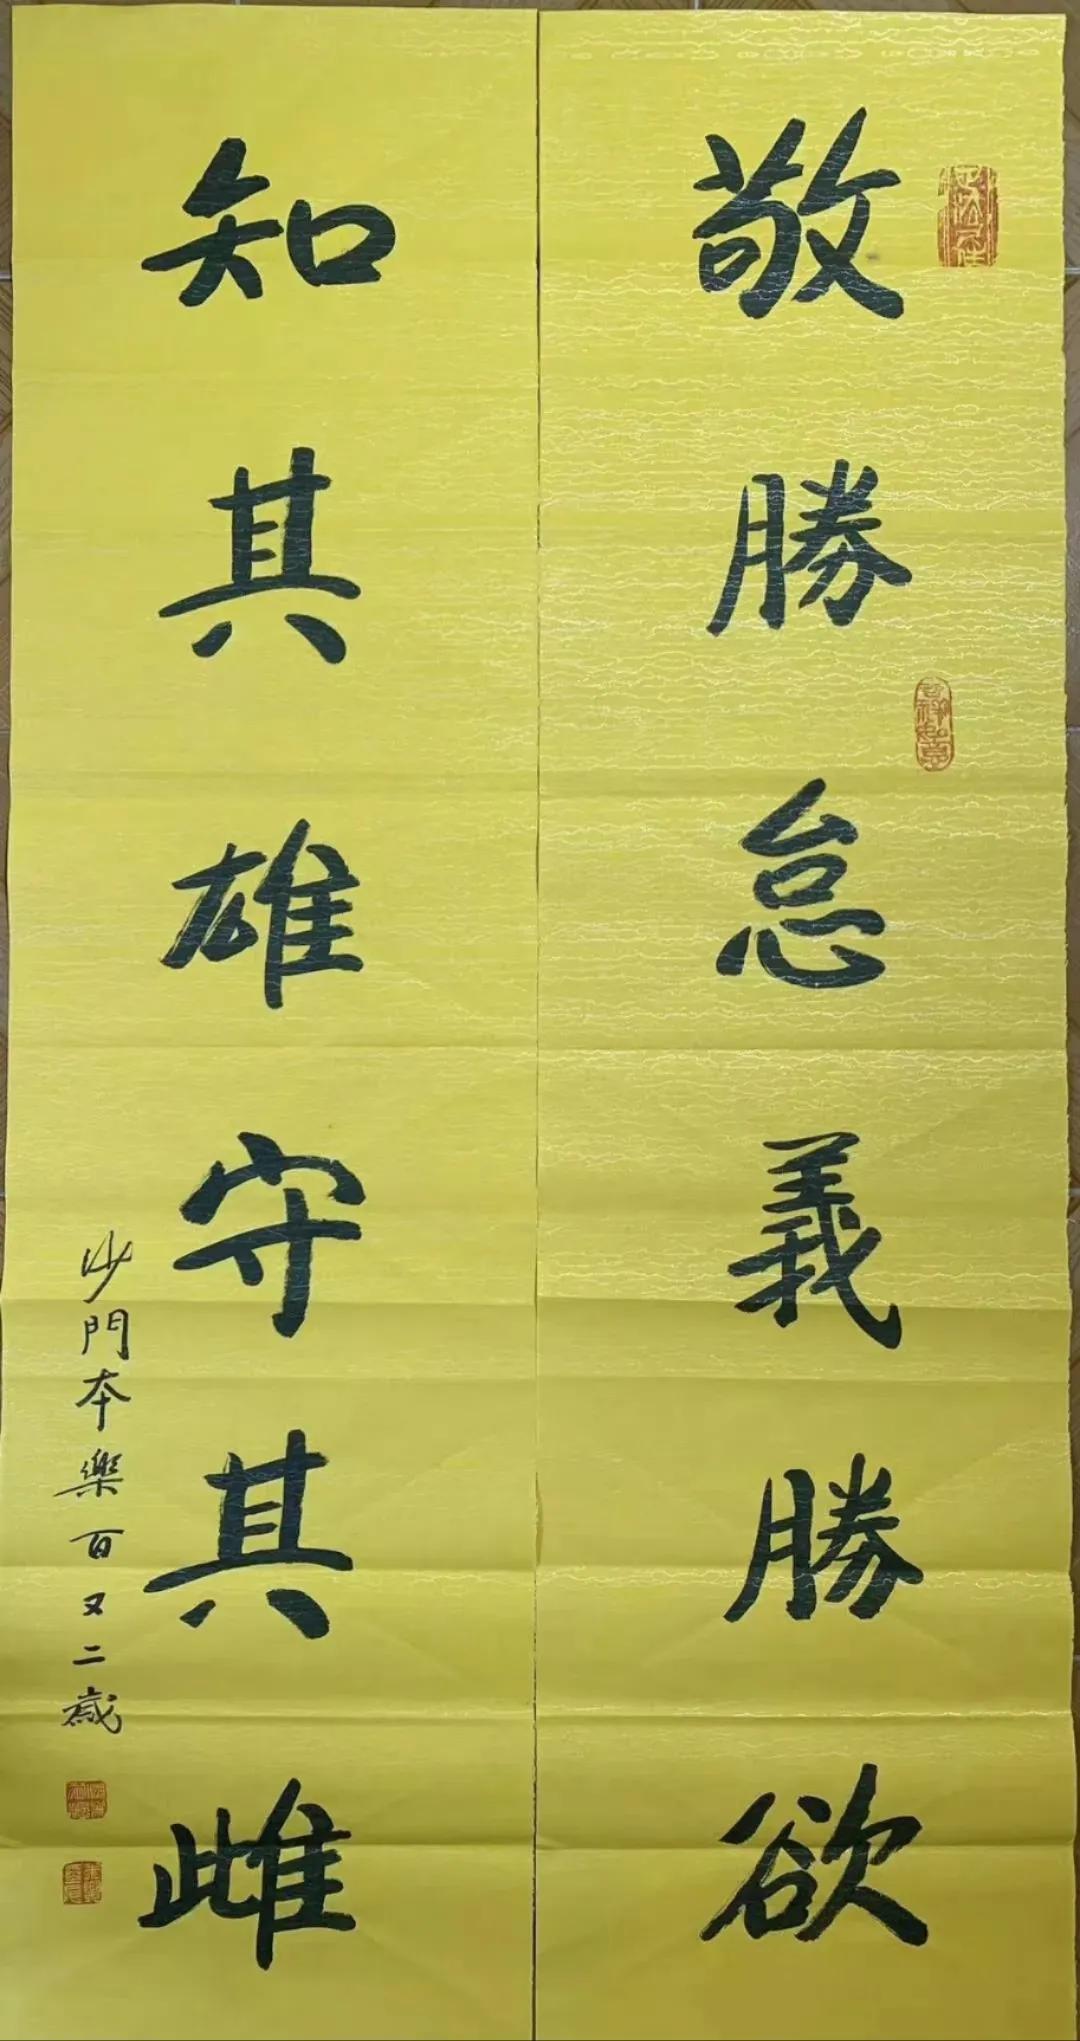 敬勝怠義勝欲
知其雄守其雌
沙門本樂百又二歲
吉祥如意